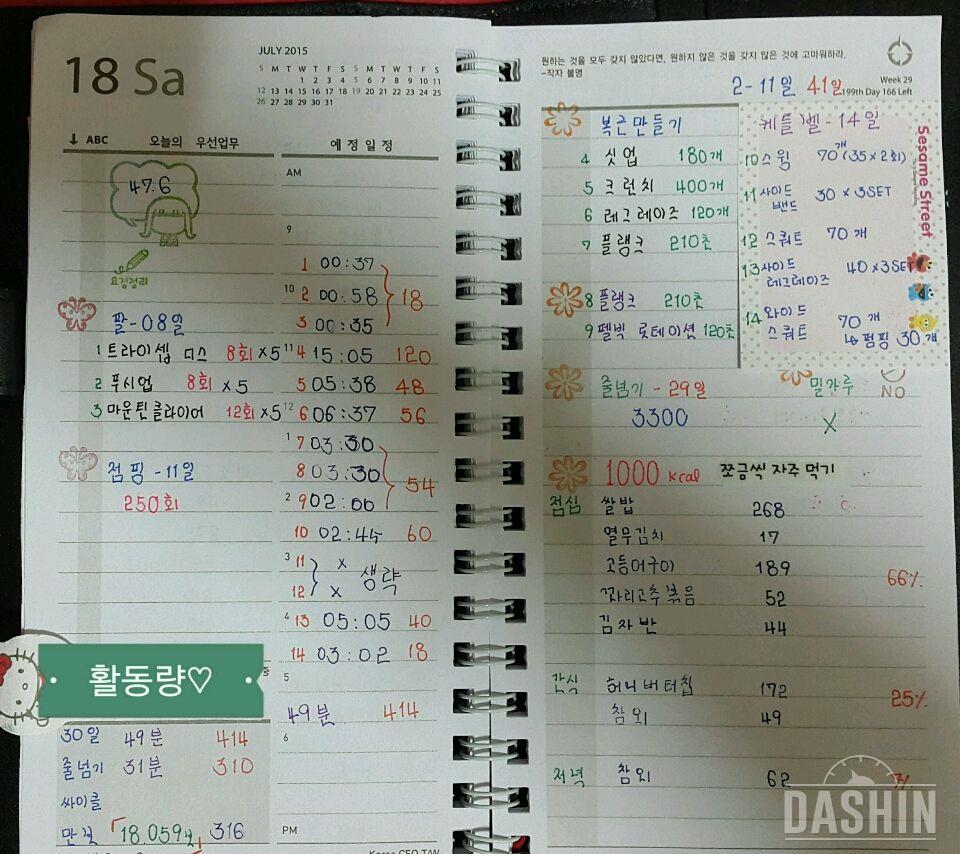 18 Sa
JULY 2015
S M T W T F S S M T W T F S
1 2 3 4 5 6 7 8 9 10 11
12 13 14 15 16 17 18 19 20 21 22 23 24 25
26 27 28 29 30 31
↓ ABC 오늘의 우선업무
예 정 일 정
47.6
요점정리
팔-08일
1 트라이셉 디스 8회 x5
2 푸시업 8회 x5
3 마운틴클라이머 12회 x5
점핑-11일
250회
AM
9
1 00:37
10
2 00:58 18
3 00:35
11
4 15:05 120
5 05:38 48
12
6 06:37 56
1
7 03:30
8 03:30 54
2
9 02:00
10 02:44 60
3
11 x 생략
12 x
4
13 05:05 40
14 03:02 18
5
49분 414
6
PM
활동량♡
30일 49분 414
줄넘기 31분 310
싸이클
만보 18.059보 316
원하는 것을 모두 갖지 않았다면, 원하지 않은 것을 갖지 않은 것에 고마워하라.
-작자 불명
2-11일 41일
Week 29
199th Day 166 Left
복근만들기
4 싯업 180개
5 크런치 400개
6 레그레이즈 120개
7 플랭크 210초
8 플랭크 210초
9 펠빅 롯테이션 120초
케틀벨-14일
10 스윙 70개(35x2회)
11 사이드 밴드 30 x 3SET
12 스쿼트 70개
13 사이드 레그레이즈 40 x 3SET
14 와이드 스쿼트 70개
↳펌핑 30개
Sesame Street
줄넘기 - 29일
3300
밀가루
X
NO
1000 kcal 쪼금씩 자주 먹기
점심 쌀밥 268
열무김치 17
고등어구이 189 66%
꽈리고추볶음 52
김자반 44
간식 허니버터칩 172 25%
참외 49
저녁 참외 62
DASHIN